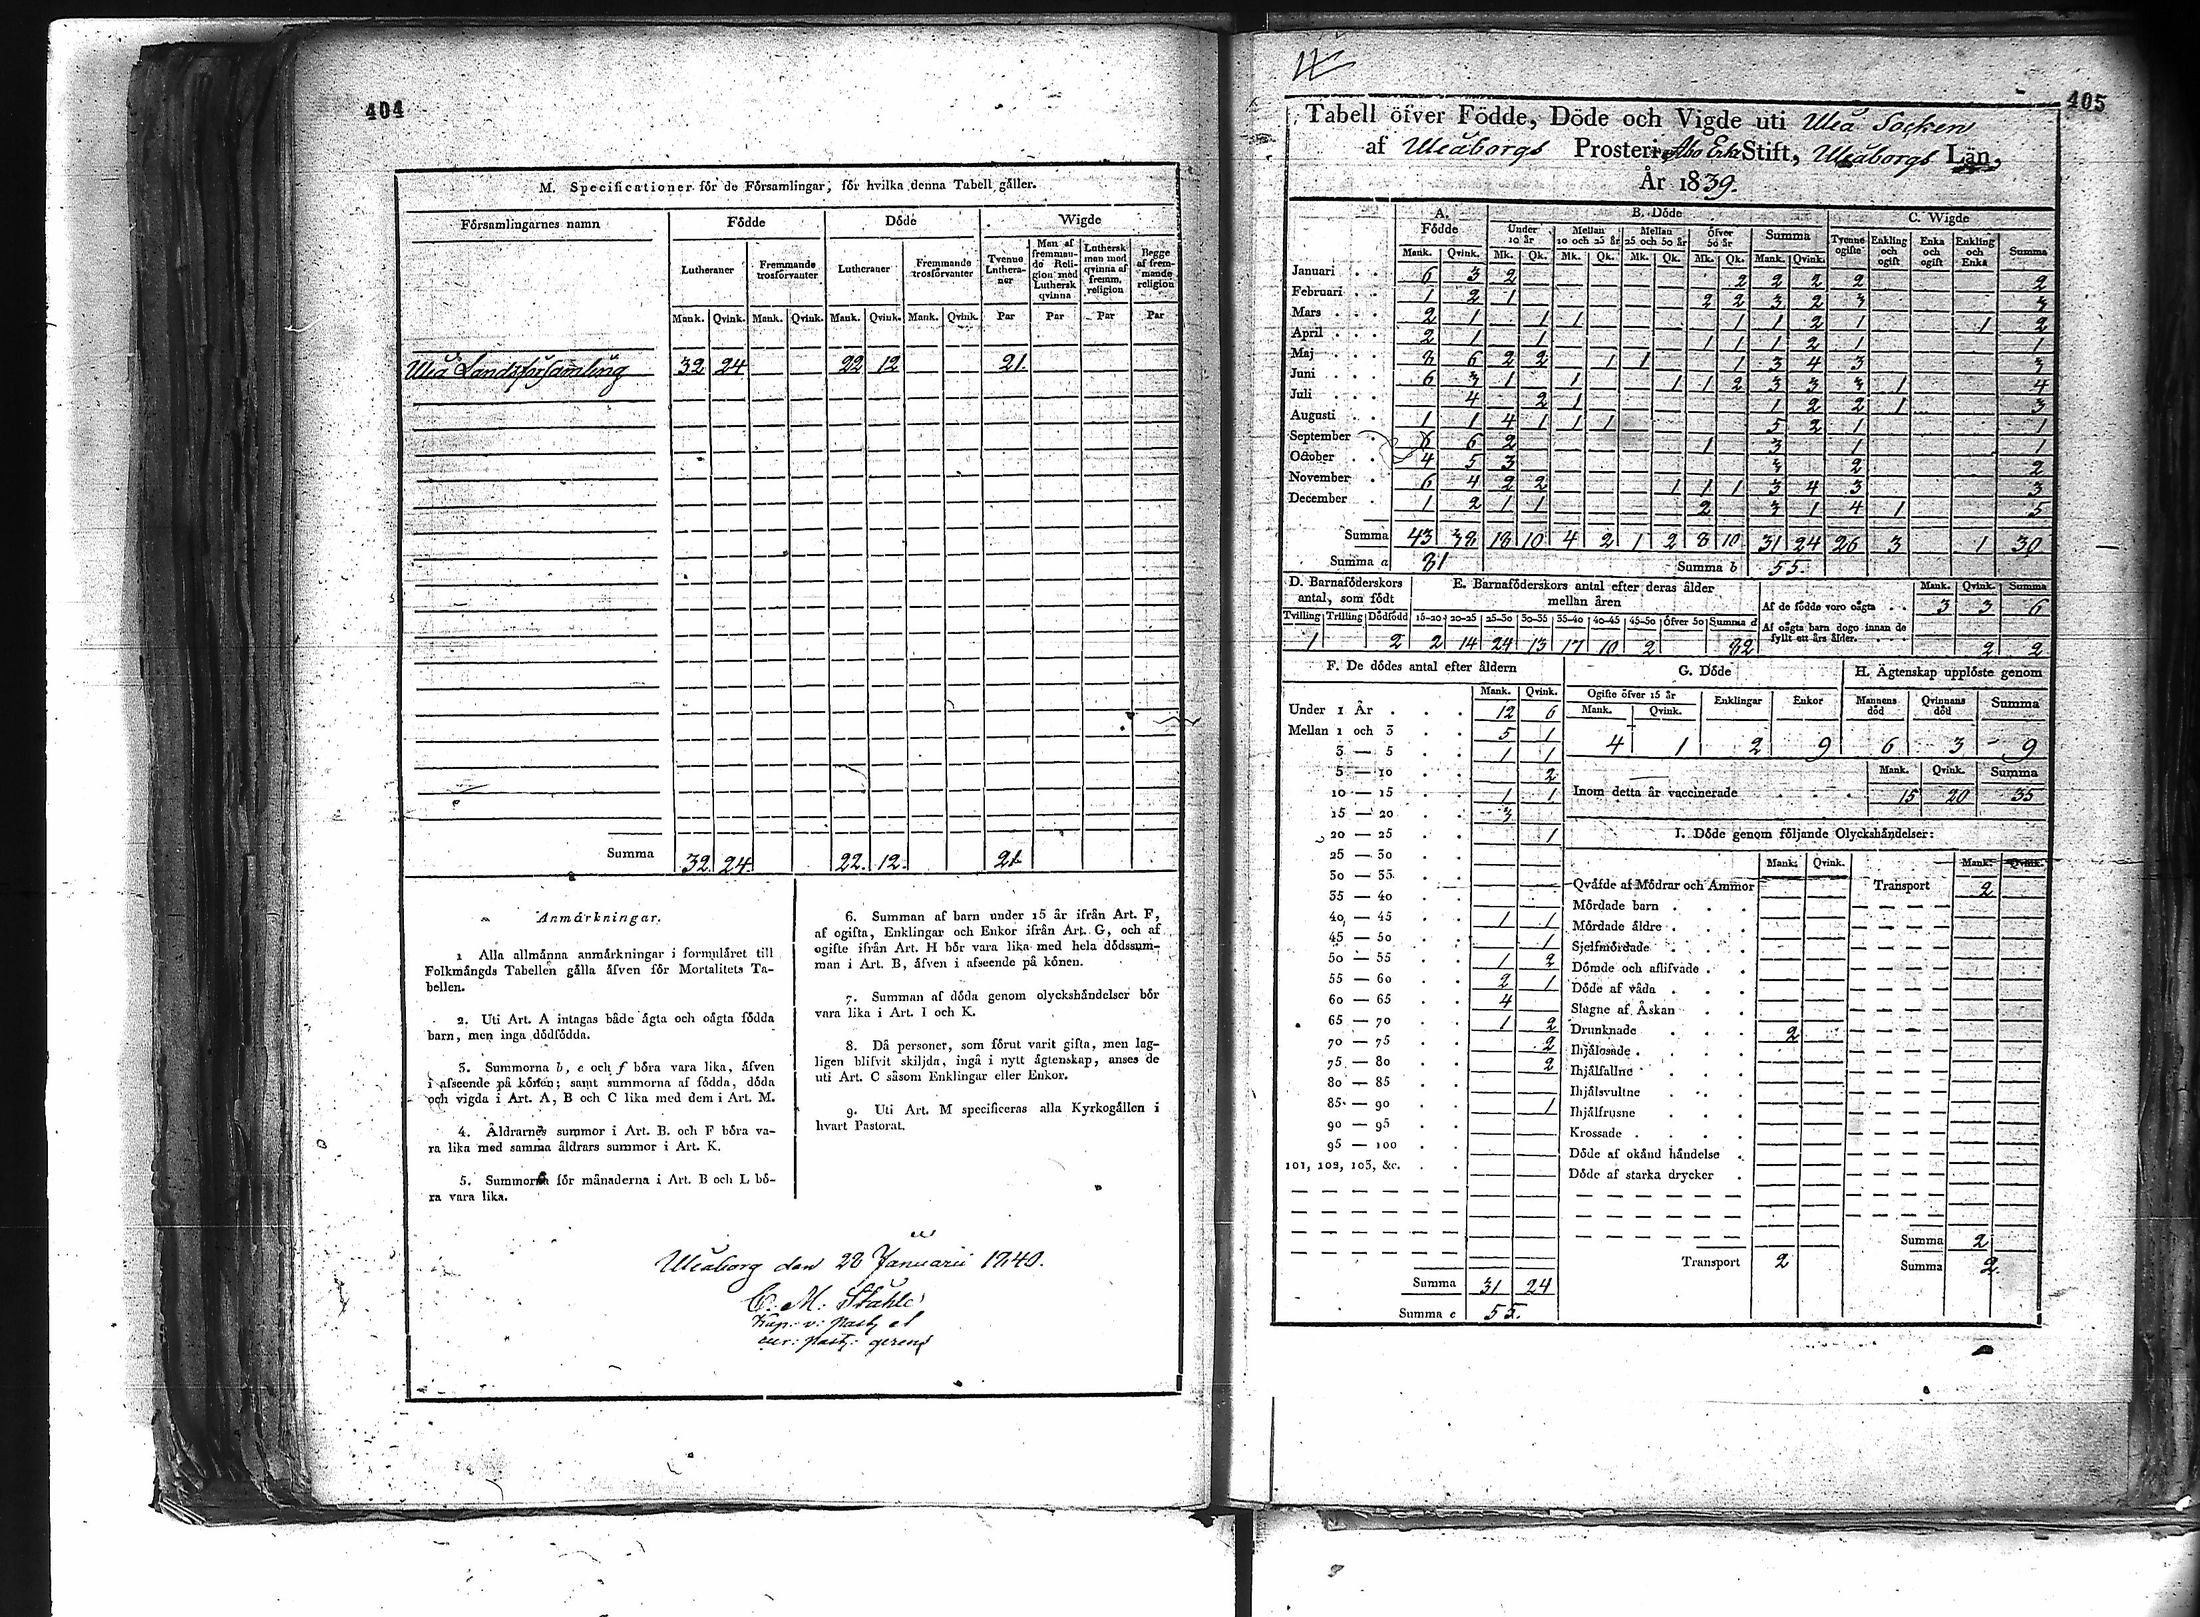 404
M. Specificationer för de Församlingar, för hvilka denna Tabell gäller.
Församlingarnes namn Födde Döde Wigde
Lutheraner Fremmande trosförvanter Lutheraner Fremmande trosförvanter Tvenne Lutheraner Man af fremmande Religion med Luthersk qvinna Luthersk man med qvinna af fremm. religion Begge af fremmande religion
Mank. Qvink. Mank. Qvink. Mank. Qvink. Mank. Qvink. Par Par Par Par
Uleå Landsförsamling 32 24 22 12 21.
Summa 32. 24. 22. 12. 21.
Anmärkningar.
1 Alla allmänna anmärkningar i formuläret till
Folkmängds Tabellen gälla äfven för Mortalitets Ta-
bellen.
2. Uti Art. A intagas både ägta och oägta födda
barn, men inga dödfödda.
3. Summorna b, c och f böra vara lika, äfven
i afseende på könen; samt summorna af födda, döda
och vigda i Art. A, B och C lika med dem i Art. M.
4. Åldrarnes summor i Art. B. och F böra va-
ra lika med samma åldrars summor i Art. K.
5. Summorna för månaderna i Art. B och L bö-
ra vara lika.
6. Summan af barn under 15 år ifrån Art. F,
af ogifta, Enklingar och Enkor ifrån Art. G, och af
ogifte ifrån Art. H bör vara lika med hela dödssum-
man i Art. B, äfven i afseende på könen.
7. Summan af döda genom olyckshändelser bör
vara lika i Art. I och K.
8. Då personer, som förut varit gifta, men lag-
ligen blifvit skiljda, ingå i nytt ägtenskap, anses de
uti Art. C såsom Enklingar eller Enkor.
9. Uti Art. M specificeras alla Kyrkogällen i
hvart Pastorat.
Uleåborg den 28 Januarii 1840.
C. M. Ståhle
405
Tabell öfver Födde, Döde och Vigde uti Uleå Socken
af Uleåborgs Prosteri, Åbo Erke Stift, Uleåborgs Län,
År 1839.
A. Födde B. Döde C. Wigde
Under 10 år Mellan 10 och 25 år Mellan 25 och 50 år Öfver 50 år Summa Tvenne ogifte Enkling och ogift Enka och ogift Enkling och Enka Summa
Mank. Qvink. Mk. Qk. Mk. Qk. Mk. Qk. Mk. Qk. Mank. Qvink.
Januari 6 3 2 2 2 2 2 2
Februari 1 2 1 2 2 3 2 3 3
Mars 2 1 1 1 1 1 2 1 1 2
April 2 1 1 1 1 1 2 1 1
Maj 8 6 2 2 1 1 1 3 4 3 3
Juni 6 3 1 1 1 1 2 3 3 3 1 4
Juli 4 2 1 1 2 2 1 3
Augusti 1 1 4 1 1 1 5 2 1 1
September 6 6 2 1 3 1 1
October 4 5 3 3 2 2
November 6 4 2 2 1 1 1 3 4 3 3
December 1 2 1 1 2 3 1 4 1 5
Summa 43 38 18 10 4 2 1 2 8 10 31 24 26 3 1 30
Summa a 81 Summa b 55.
D. Barnaföderskors antal, som födt
Tvilling Trilling Dödfödd
1 2
E. Barnaföderskors antal efter deras ålder mellan åren
15–20 20–25 25–30 30–35 35–40 40–45 45–50 Öfver 50 Summa d
2 14 24 13 17 10 2 82
Mank. Qvink. Summa
Af de födde voro oägta 3 3 6
Af oägta barn dogo innan de fyllt ett års ålder. 2 2
F. De dödes antal efter åldern
Mank. Qvink.
Under 1 År 12 6
Mellan 1 och 3 5 1
3 — 5 1 1
5 — 10 2
10 — 15 1 1
15 — 20 3
20 — 25 1
25 — 30
30 — 35
35 — 40
40 — 45 1 1
45 — 50 1
50 — 55 1 2
55 — 60 2 1
60 — 65 4
65 — 70 1 2
70 — 75 2
75 — 80 2
80 — 85
85 — 90 1
90 — 95
95 — 100
101, 102, 103, &c.
Summa 31 24
Summa c 55.
G. Döde
Ogifte öfver 15 år Enklingar Enkor
Mank. Qvink.
4 1 2 9
H. Ägtenskap upplöste genom
Mannens död Qvinnans död Summa
6 3 9
Mank. Qvink. Summa
Inom detta år vaccinerade 15 20 35
I. Döde genom följande Olyckshändelser:
Mank. Qvink. Mank. Qvink.
Qväfde af Mödrar och Ammor Transport 2
Mördade barn
Mördade äldre
Sjelfmördade
Dömde och aflifvade
Döde af våda
Slagne af Åskan
Drunknade 2
Ihjälosade
Ihjälfallne
Ihjälsvultne
Ihjälfrusne
Krossade
Döde af okänd händelse
Döde af starka drycker
Summa 2
Transport 2 Summa 2.